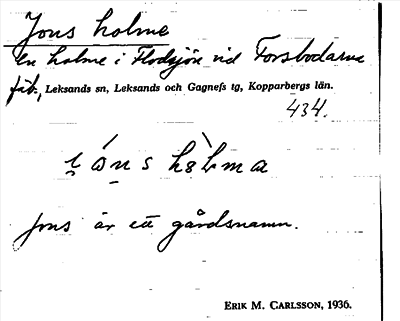 Jons holme
en holme i Flodsjön vid Forsbodarna
fäb., Leksands sn, Leksands och Gagnefs tg, Kopparbergs län.
434.
Jons är ett gårdsnamn.
ERIK M. CARLSSON, 1936.